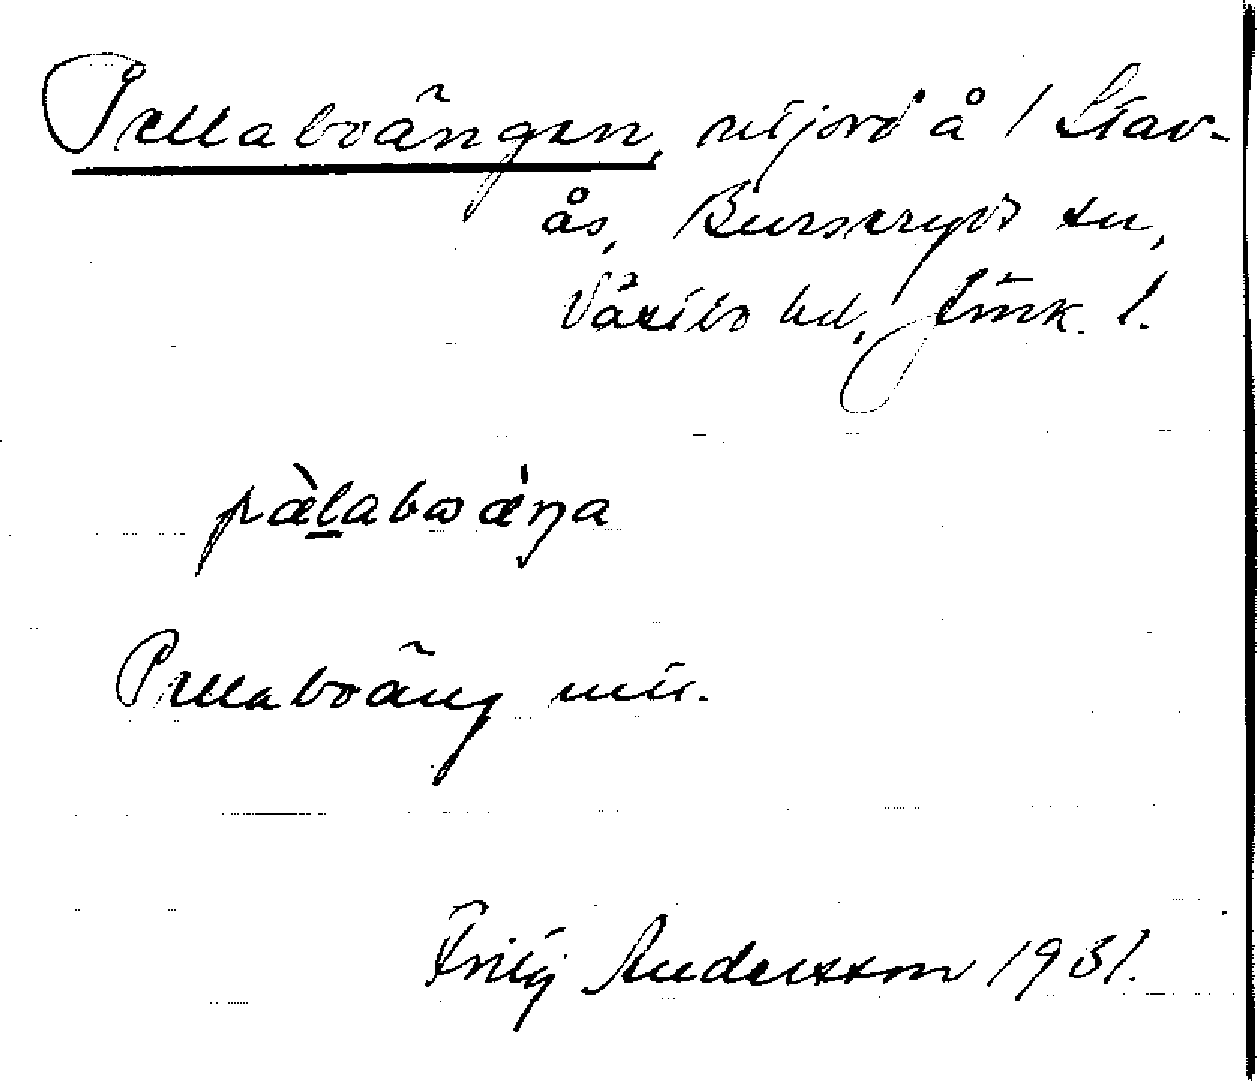 Pellaboängen, utjord å 1 Stav-
ås, Burseryds sn,
Västbo hd, Jönk. l.
pæ̀laboæ̀ŋa
Pellaboäng mtr.
Fritiof Andersson 1931.